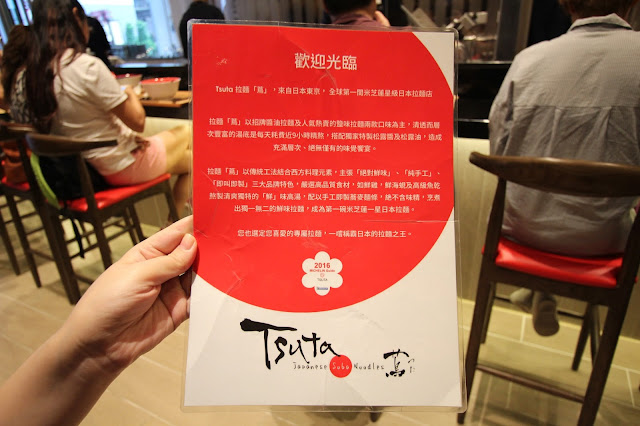 歡迎光臨
Tsuta 拉麵「蔦」，來自日本東京， 全球第一間米芝蓮星級日本拉麵店
拉麵「蔦」以招牌醬油拉麵及人氣熱賣的鹽味拉麵兩款口味為主，清透而層
次豐富的湯底是每天耗費近9小時精熬，搭配獨家特製松露醬及松露油，造成
充滿層次、絕無僅有的味覺饗宴。
拉麵「蔦」以傳統工法結合西方料理元素，主張「絕對鮮味」、「純手工」、
「即叫即製」三大品牌特色，嚴選高品質食材，如鮮雞，鮮海蜆及高級魚乾
熬製清爽獨特的「鮮」味高湯，配以手工即製蕎麥麵條，絶不含味精，烹煮
出獨一無二的鮮味拉麵，成為第一碗米芝蓮一星日本拉麵。
您也選定您喜愛的專屬拉麵，一嚐稱霸日本的拉麵之王。
2016
MICHELIN Guide
TSUTA
Tsuta
Japanese Soba Noodles 蔦
つた